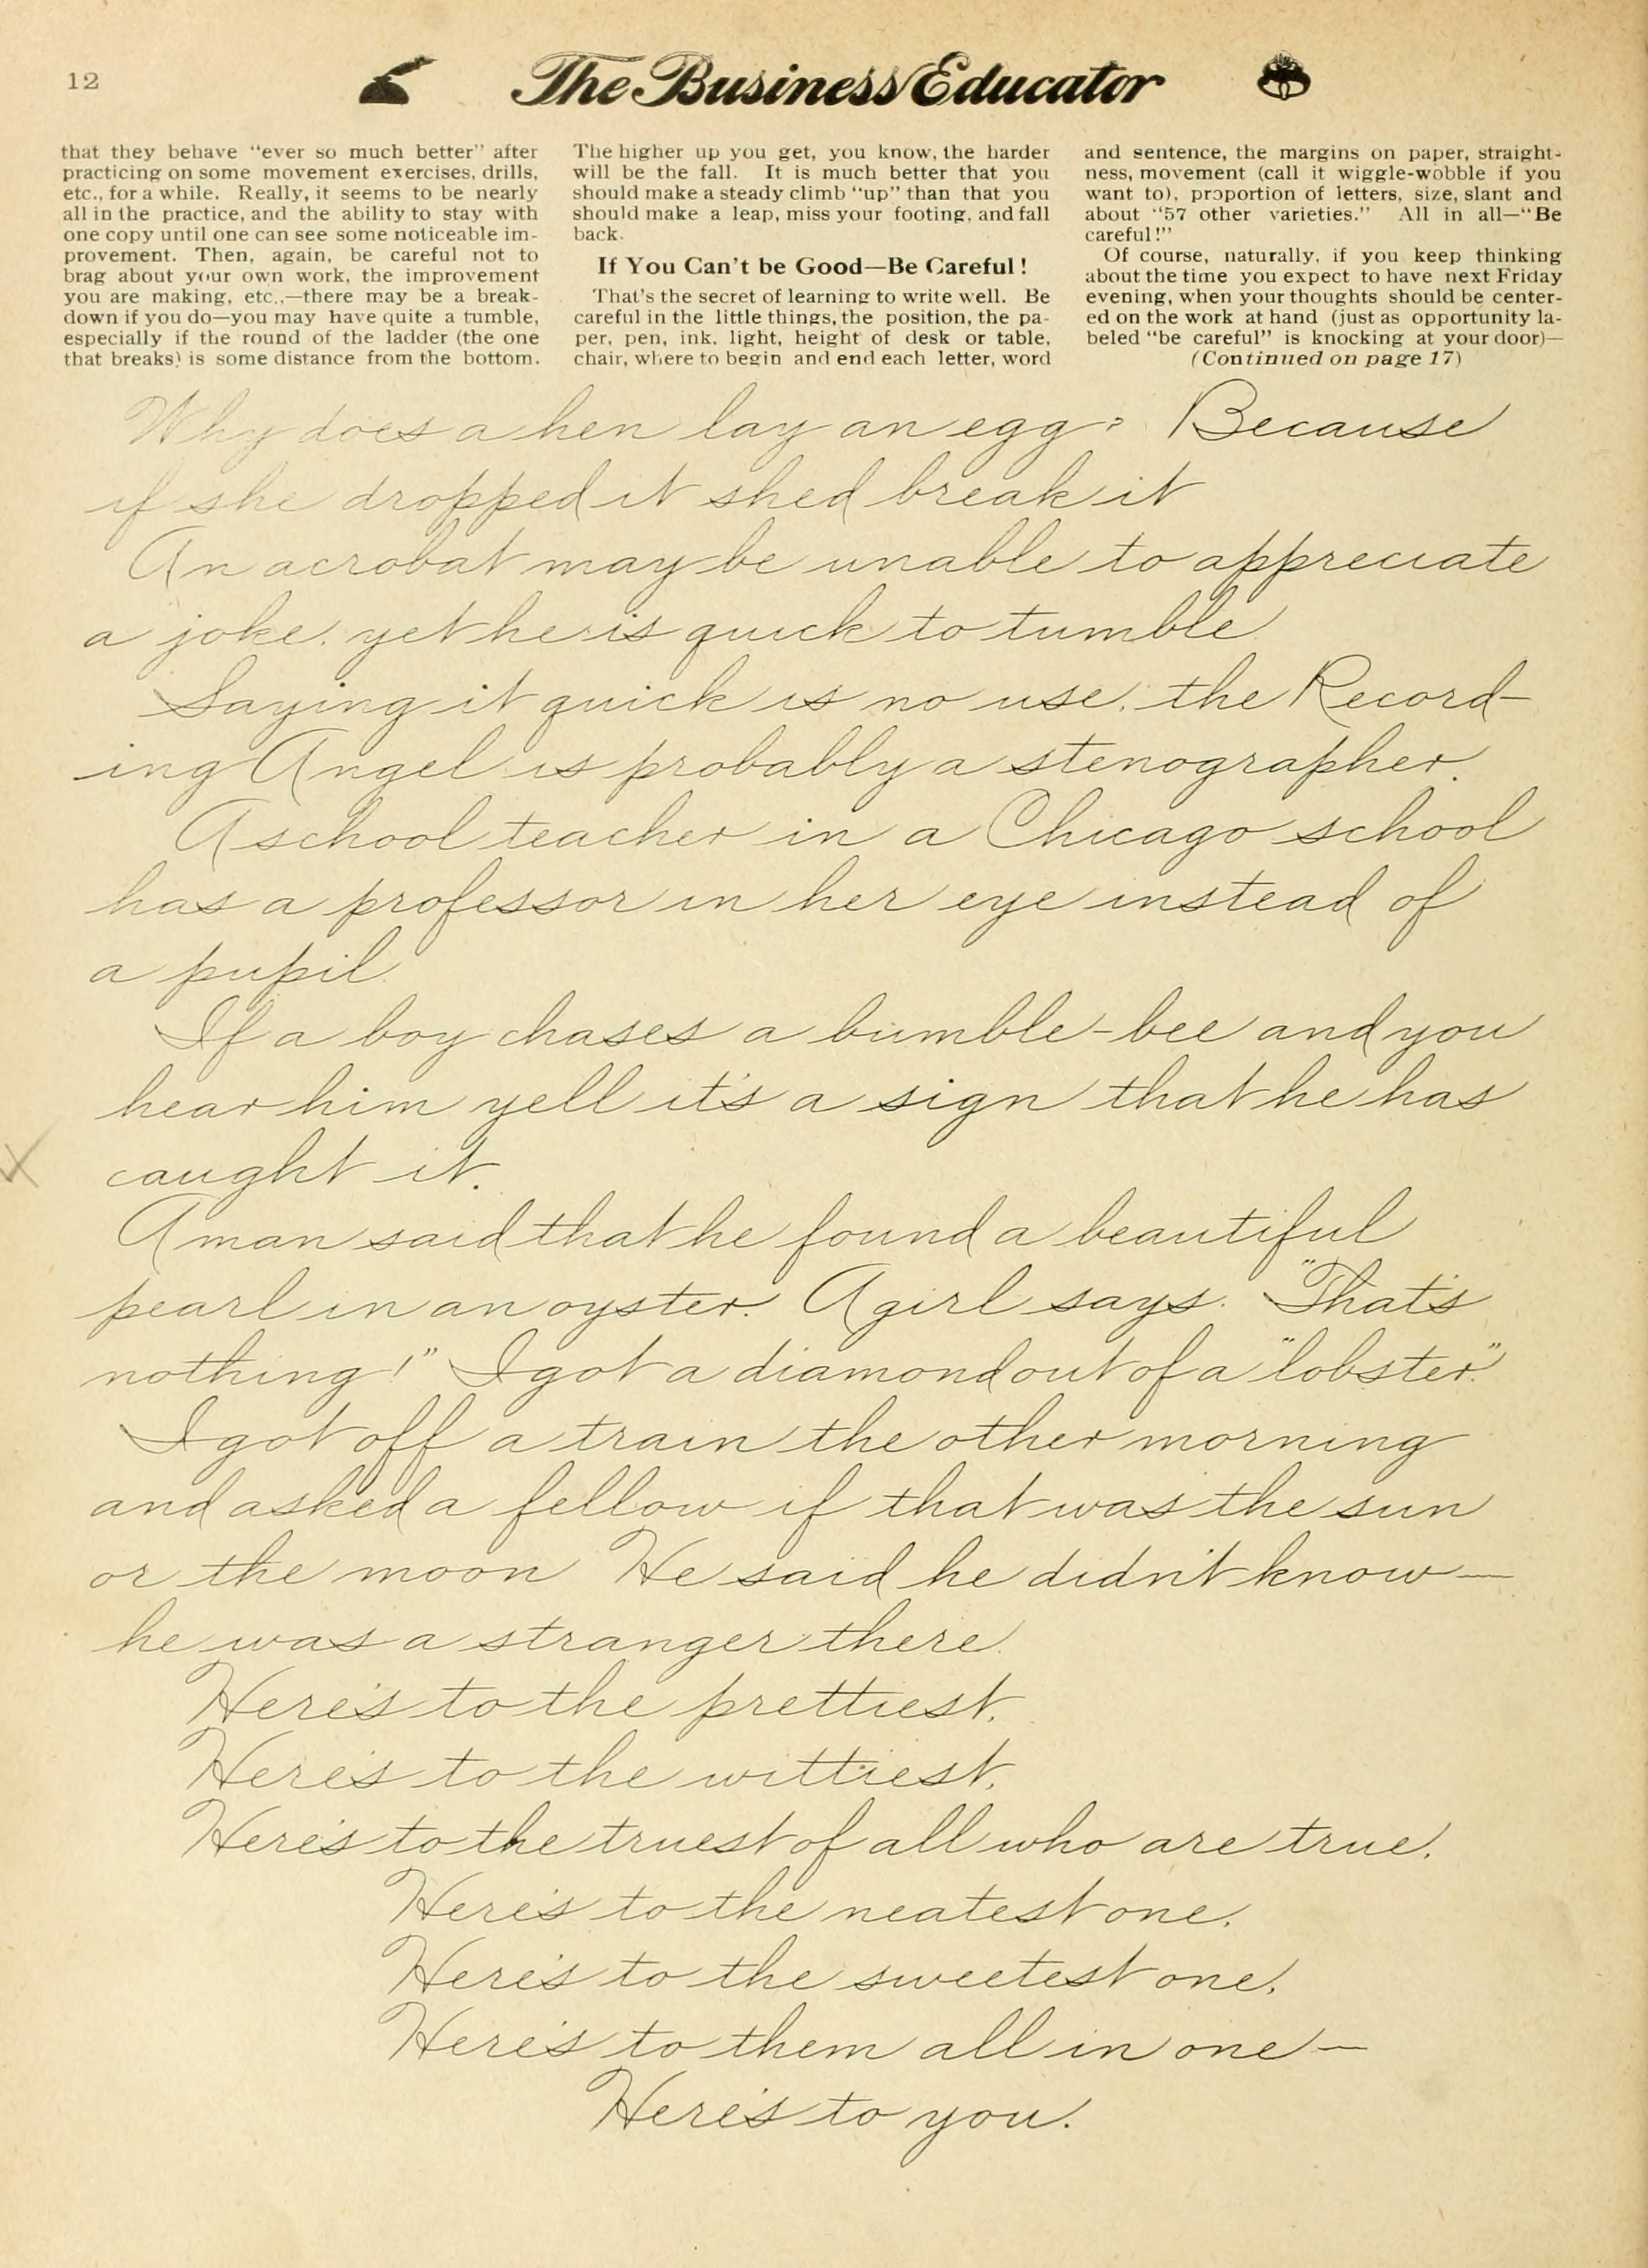 12
The Business Educator
that they behave "ever so much better" after
practicing on some movement exercises, drills,
etc., for a while. Really, it seems to be nearly
all in the practice, and the ability to stay with
one copy until one can see some noticeable im-
provement. Then, again, be careful not to
brag about your own work, the improvement
you are making, etc.,—there may be a break-
down if you do—you may have quite a tumble,
especially if the round of the ladder (the one
that breaks) is some distance from the bottom.
The higher up you get, you know, the harder
will be the fall. It is much better that you
should make a steady climb "up" than that you
should make a leap, miss your footing, and fall
back.
If You Can't be Good—Be Careful!
That's the secret of learning to write well. Be
careful in the little things, the position, the pa-
per, pen, ink, light, height of desk or table,
chair, where to begin and end each letter, word
and sentence, the margins on paper, straight-
ness, movement (call it wiggle-wobble if you
want to), proportion of letters, size, slant and
about "57 other varieties." All in all—"Be
careful!"
Of course, naturally, if you keep thinking
about the time you expect to have next Friday
evening, when your thoughts should be center-
ed on the work at hand (just as opportunity la-
beled "be careful" is knocking at your door)—
(Continued on page 17)
Why does a hen lay an egg? Because
if she dropped it shed break it
An acrobat may be unable to appreciate
a joke, yet he is quick to tumble.
Saying it quick is no use, the Record-
ing Angel is probably a stenographer.
A school teacher in a Chicago school
has a professor in her eye instead of
a pupil.
If a boy chases a bumble-bee and you
hear him yell it's a sign that he has
caught it.
A man said that he found a beautiful
pearl in an oyster. A girl says. "That's
nothing!" I got a diamond out of a "lobster."
I got off a train the other morning
and asked a fellow if that was the sun
or the moon He said he didn't know—
he was a stranger there.
Here's to the prettiest,
Here's to the wittiest,
Here's to the truest of all who are true,
Here's to the neatest one,
Here's to the sweetest one,
Here's to them all in one—
Here's to you.